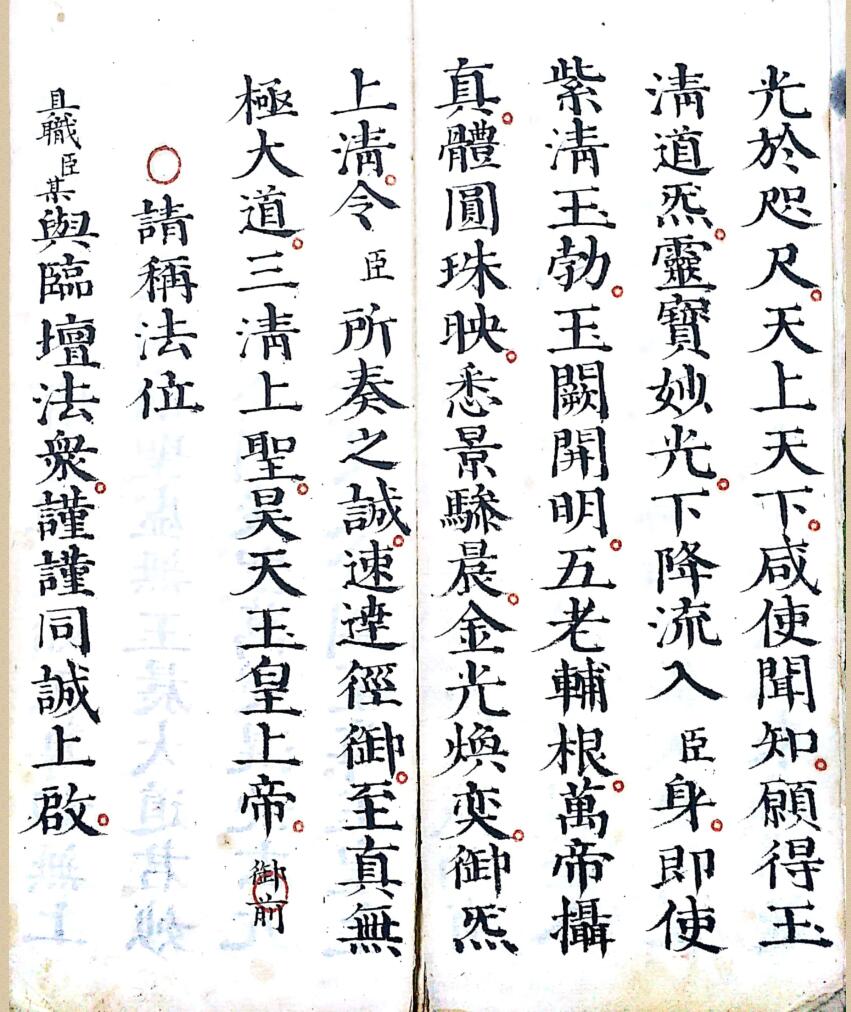 光於咫尺。天上天下。咸使聞知。願得玉
清道炁。靈寶妙光。下降流入臣身。即使
紫清玉勃。玉闕開明。五老輔根。萬帝攝
真。體圓珠映。悉景驂晨。金光煥奕。御炁
上清。令臣所奏之誠。速達徑御。至真無
極大道。三清上聖。昊天玉皇上帝。御前
○請稱法位
具職臣某與臨壇法衆。謹謹同誠上啟。